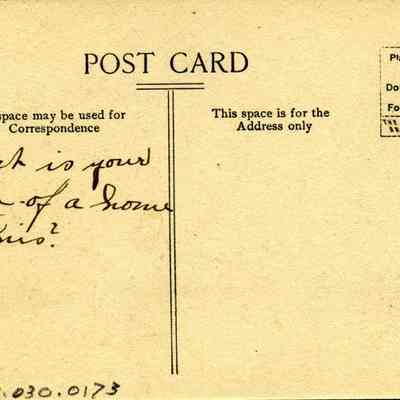 POST CARD
space may be used for
Correspondence
This space is for the
Address only
Pl
Do
Fo
THE
is your
of a home
this?
.030.0173